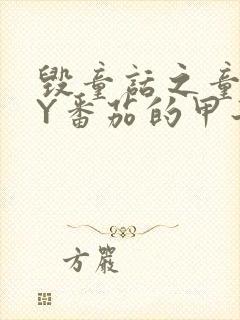 毁童话之童
Y番茄的甲
方严